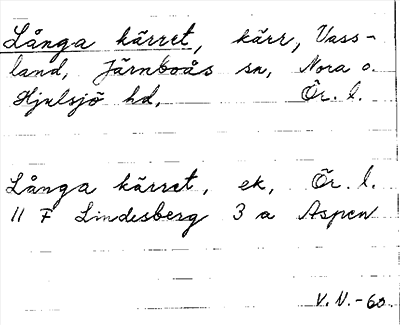 Långa kärret, kärr, Vass-
land, Järnboås sn, Nora o.
Hjulsjö hd, Ör. l.
Långa kärret, ek, Ör. l.
11 F Lindesberg 3 a Aspen
V.V.-60.